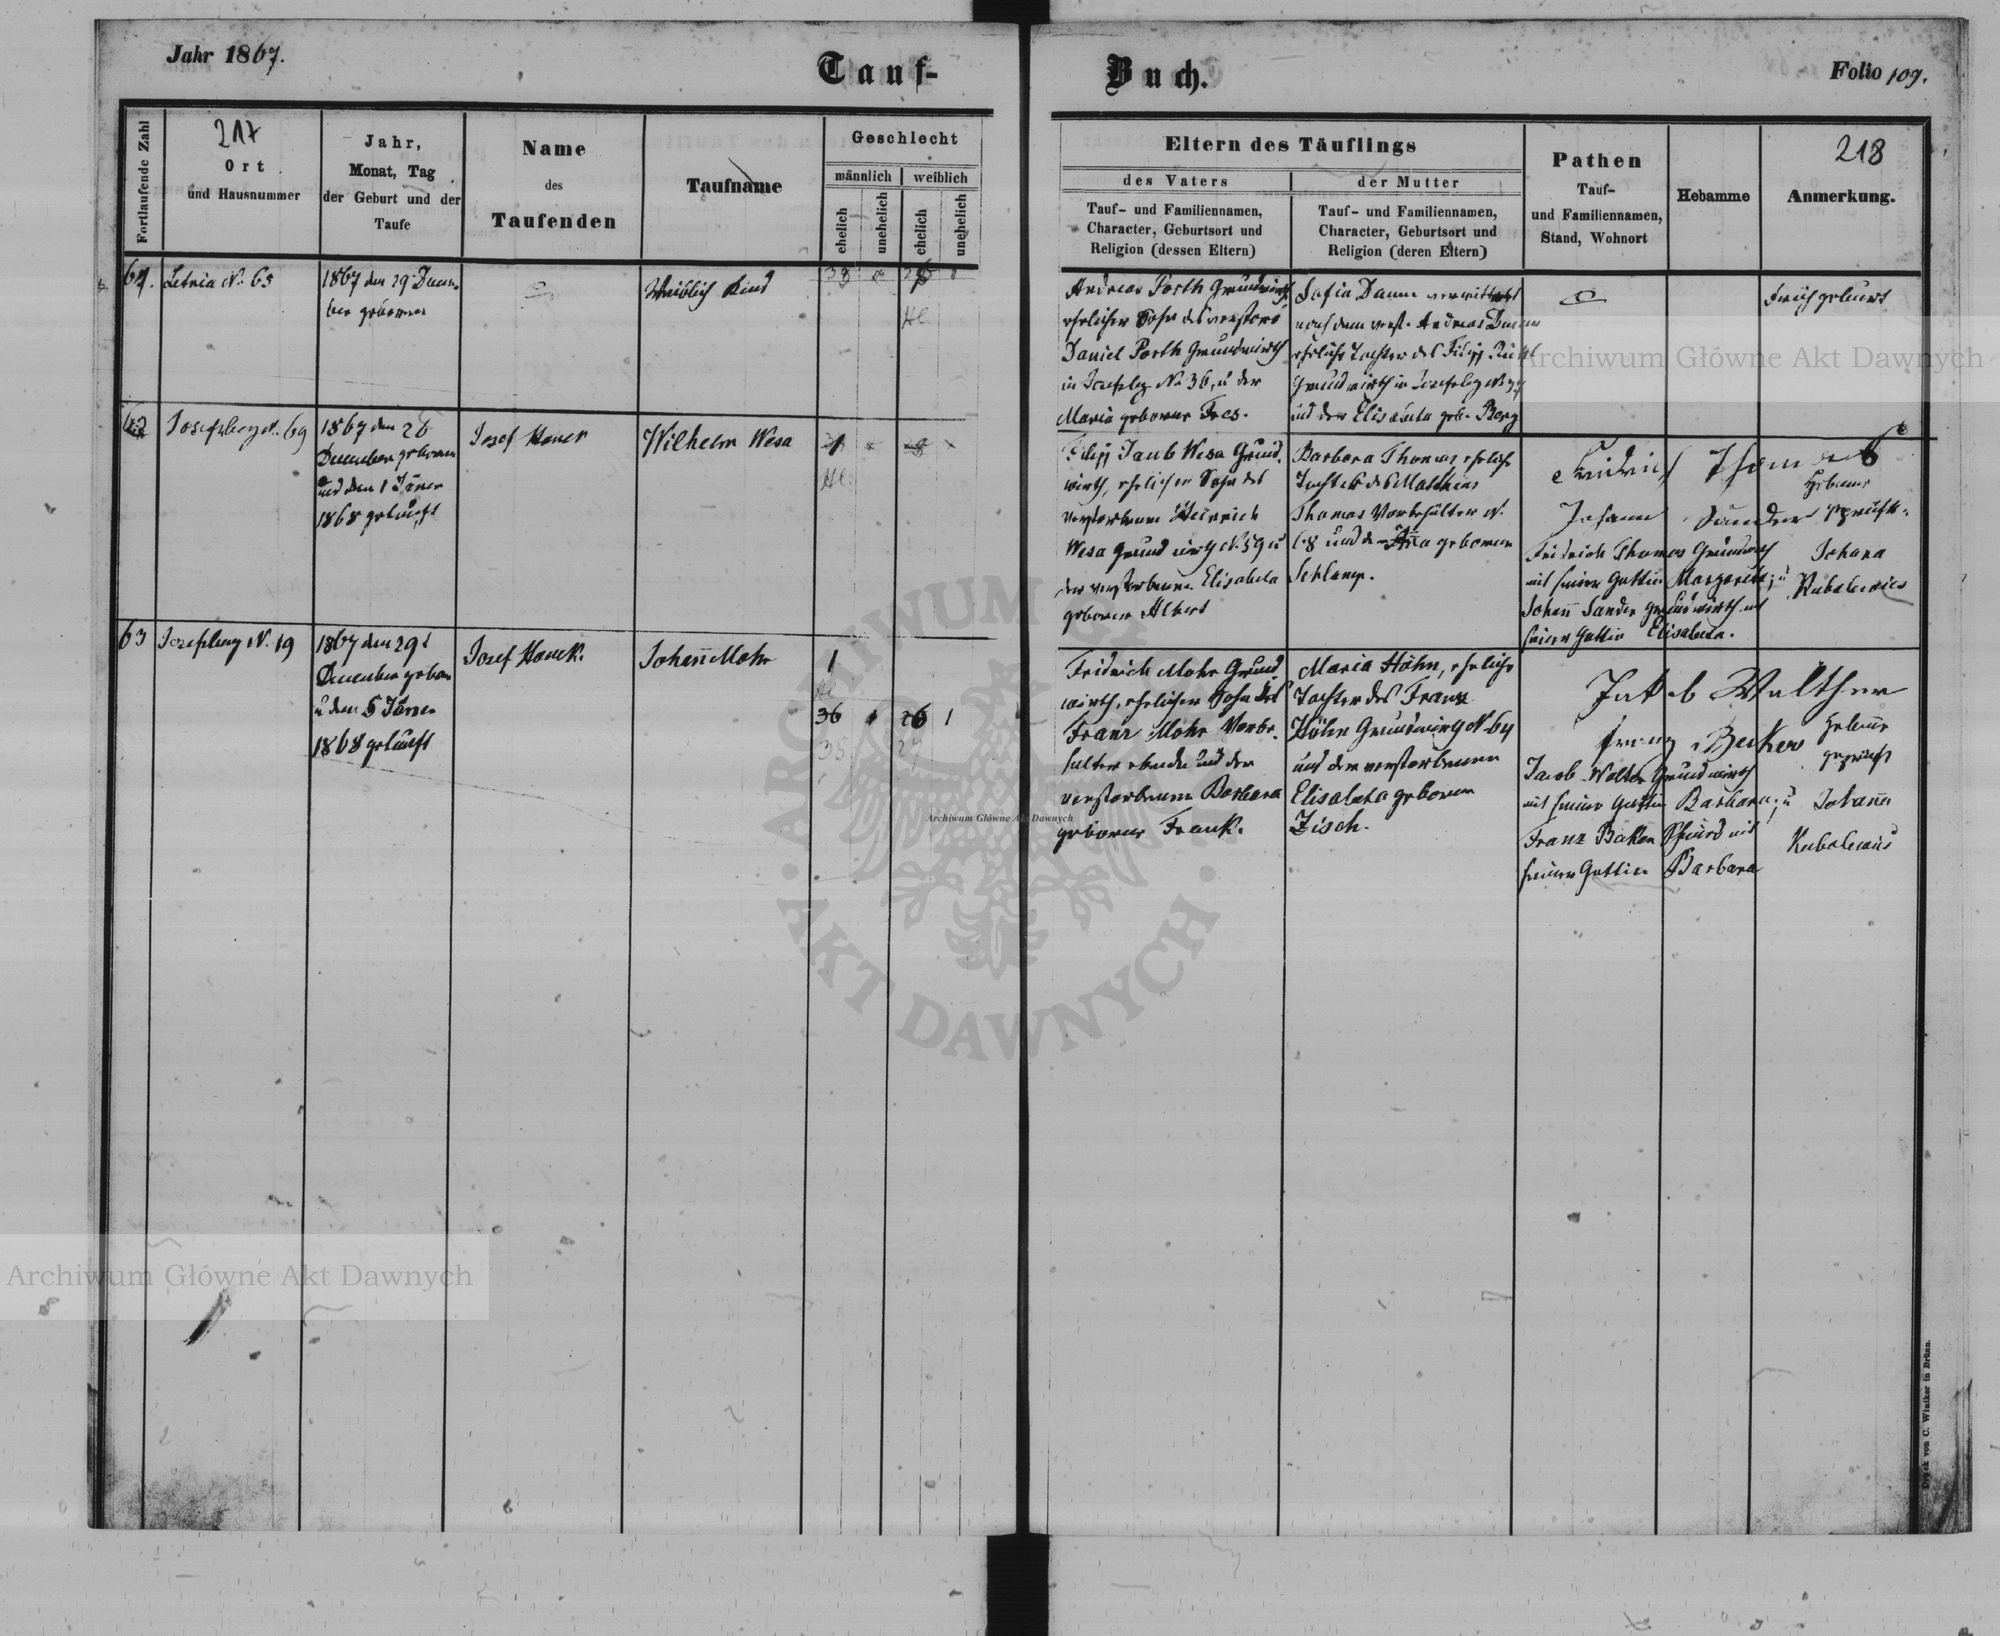 Jahr 1867.
Tauf-
Buch.
Folio 109.
Fortlaufende Zahl
217
Ort
und Hausnummer
Jahr,
Monat, Tag
der Geburt und der
Taufe
Name
des
Taufenden
Taufname
Geschlecht
männlich
weiblich
ehelich
unehelich
ehelich
unehelich
Eltern des Täuflings
des Vaters
Tauf- und Familiennamen,
Character, Geburtsort und
Religion (dessen Eltern)
der Mutter
Tauf- und Familiennamen,
Character, Geburtsort und
Religion (deren Eltern)
Pathen
Tauf-
und Familiennamen,
Stand, Wohnort
Hebamme
218
Anmerkung.
Letnia N. 63
1867 den 29 Decem-
ber geboren
Weiblich Kind
Andreas Porth Grundwirth
ehelicher Sohn des verstorb
Daniel Porth Grundwirth
in Josefsbg No 36, u der
Maria geborene Fres.
Sofia Daum verwittwet
nach dem verst. Andreas Daum
eheliche Tochter des Filipp
Grundwirth in Josefsbg
und der Elisabeta geb. Berg
62
Josefsberg N. 69
1867 den 26
December geboren
und den 1 Jäner
1868 getauft
Josef Hauck
Wilhelm Wesa
1
Filipp Jacob Wesa Grund
wirth, ehelicher Sohn des
verstorbenen Heinrich
Wesa Grundwirth N. 59 u
der verstorbenen Elisabeta
geborene Albert
Barbara Thomas eheliche
Tochter des Mathias
Thomas Vorbehälter N.
68 und der Aña geborene
Schlamp.
Fridrich Thomas
Johann Sander
Fridrich Thomas Grundwirth
mit seiner Gattin Margareta; u
Johañ Sander Grundwirth mit
seiner Gattin Elisabeta.
Hebame
geprüft.
Johana
63
Josefsberg N. 19
1867 den 29t
December geboren
u den 5 Jäner
1868 getauft
Josef Hauck.
Johañ Mohr
1
36
26
1
35
27
Fridrich Mohr Grund
wirth, ehelicher Sohn des
Franz Mohr Vorbe-
halter ebenda und der
verstorbenen Barbara
geborene Frank.
Maria Höhn, eheliche
Tochter des Franz
Höhn Grundwirth N 64
und der verstorbenen
Elisabeta geborene
Zisch.
Jakob Walther
Franz Becker
Jacob Walter Grundwirth
mit seiner Gattin Barbara; u
Franz Baker Schmid mit
seiner Gattin Barbara
Hebame
geprüft
Johaña
Archiwum Główne Akt Dawnych
Archiwum Główne Akt Dawnych
Archiwum Główne Akt Dawnych
ARCHIWUM
AKT DAWNYCH
Druck von C. Winiker in Brünn.